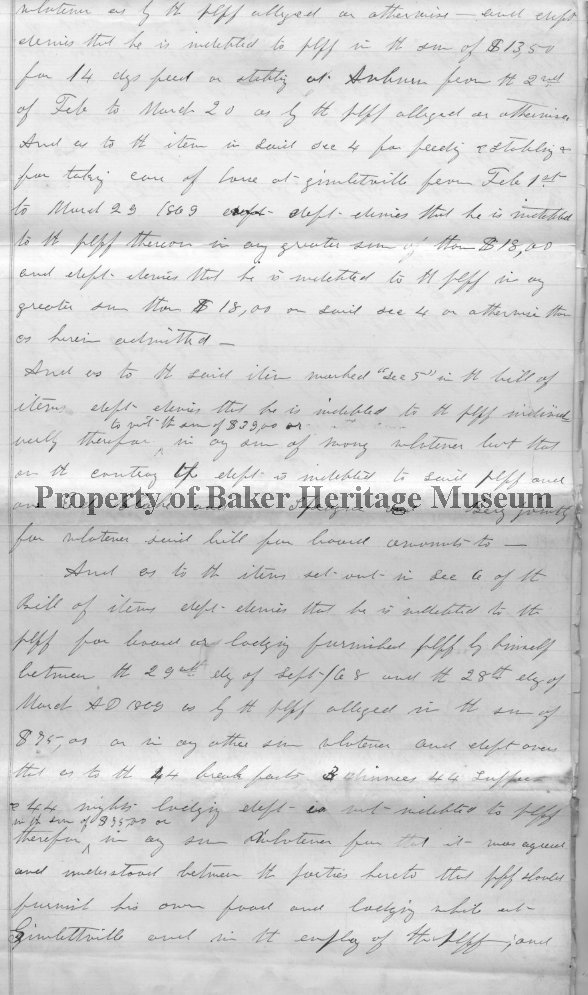 whatever as by th plff alleged or otherwise — and deft
denies that he is indebted to plff in th sum of $13,50
for 14 dys feed or stablig at Auburn from th 2nd
of Feb to March 20 as by th plff alleged or otherwise
And as to th item in said sec 4 for feedig & stablig &
for takig care of horse at Gimletville from Feb 1st
to March 29 1869 deft denies that he is indebted
to th plff thereon in any greater sum than $18,00
and deft denies that he is indebted to th plff in any
greater sum than $18,00 on said sec 4 or otherwise than
as herein admitted —
And as to th said item marked "sec 5" in th bill of
items deft denies that he is indebted to th plff individ
to wit th sum of $39,00 or
ually therefor, in any sum of money whatever but that
on th contrary deft is indebted to said plff and
Property of Baker Heritage Museum
for whatever said bill for board amounts to —
And as to th items set out in sec 6 of th
Bill of items deft denies that he is indebted to th
plff for board or lodgig furnished plff by himself
between th day of Sept /68 and th 28th dy of
March AD 1869 as by th plff alleged in th sum of
or in any other sum whatever and deft avers
that as to th 44 breakfasts 3 dinners 44 suppers
& 44 nights lodgig deft is not indebted to plff
in th sum of or
therefor in any sum whatever for that it was agreed
and understood between th parties hereto that plff should
furnish his own food and lodgig while at
Gimlettville and in th employ of th plff, and